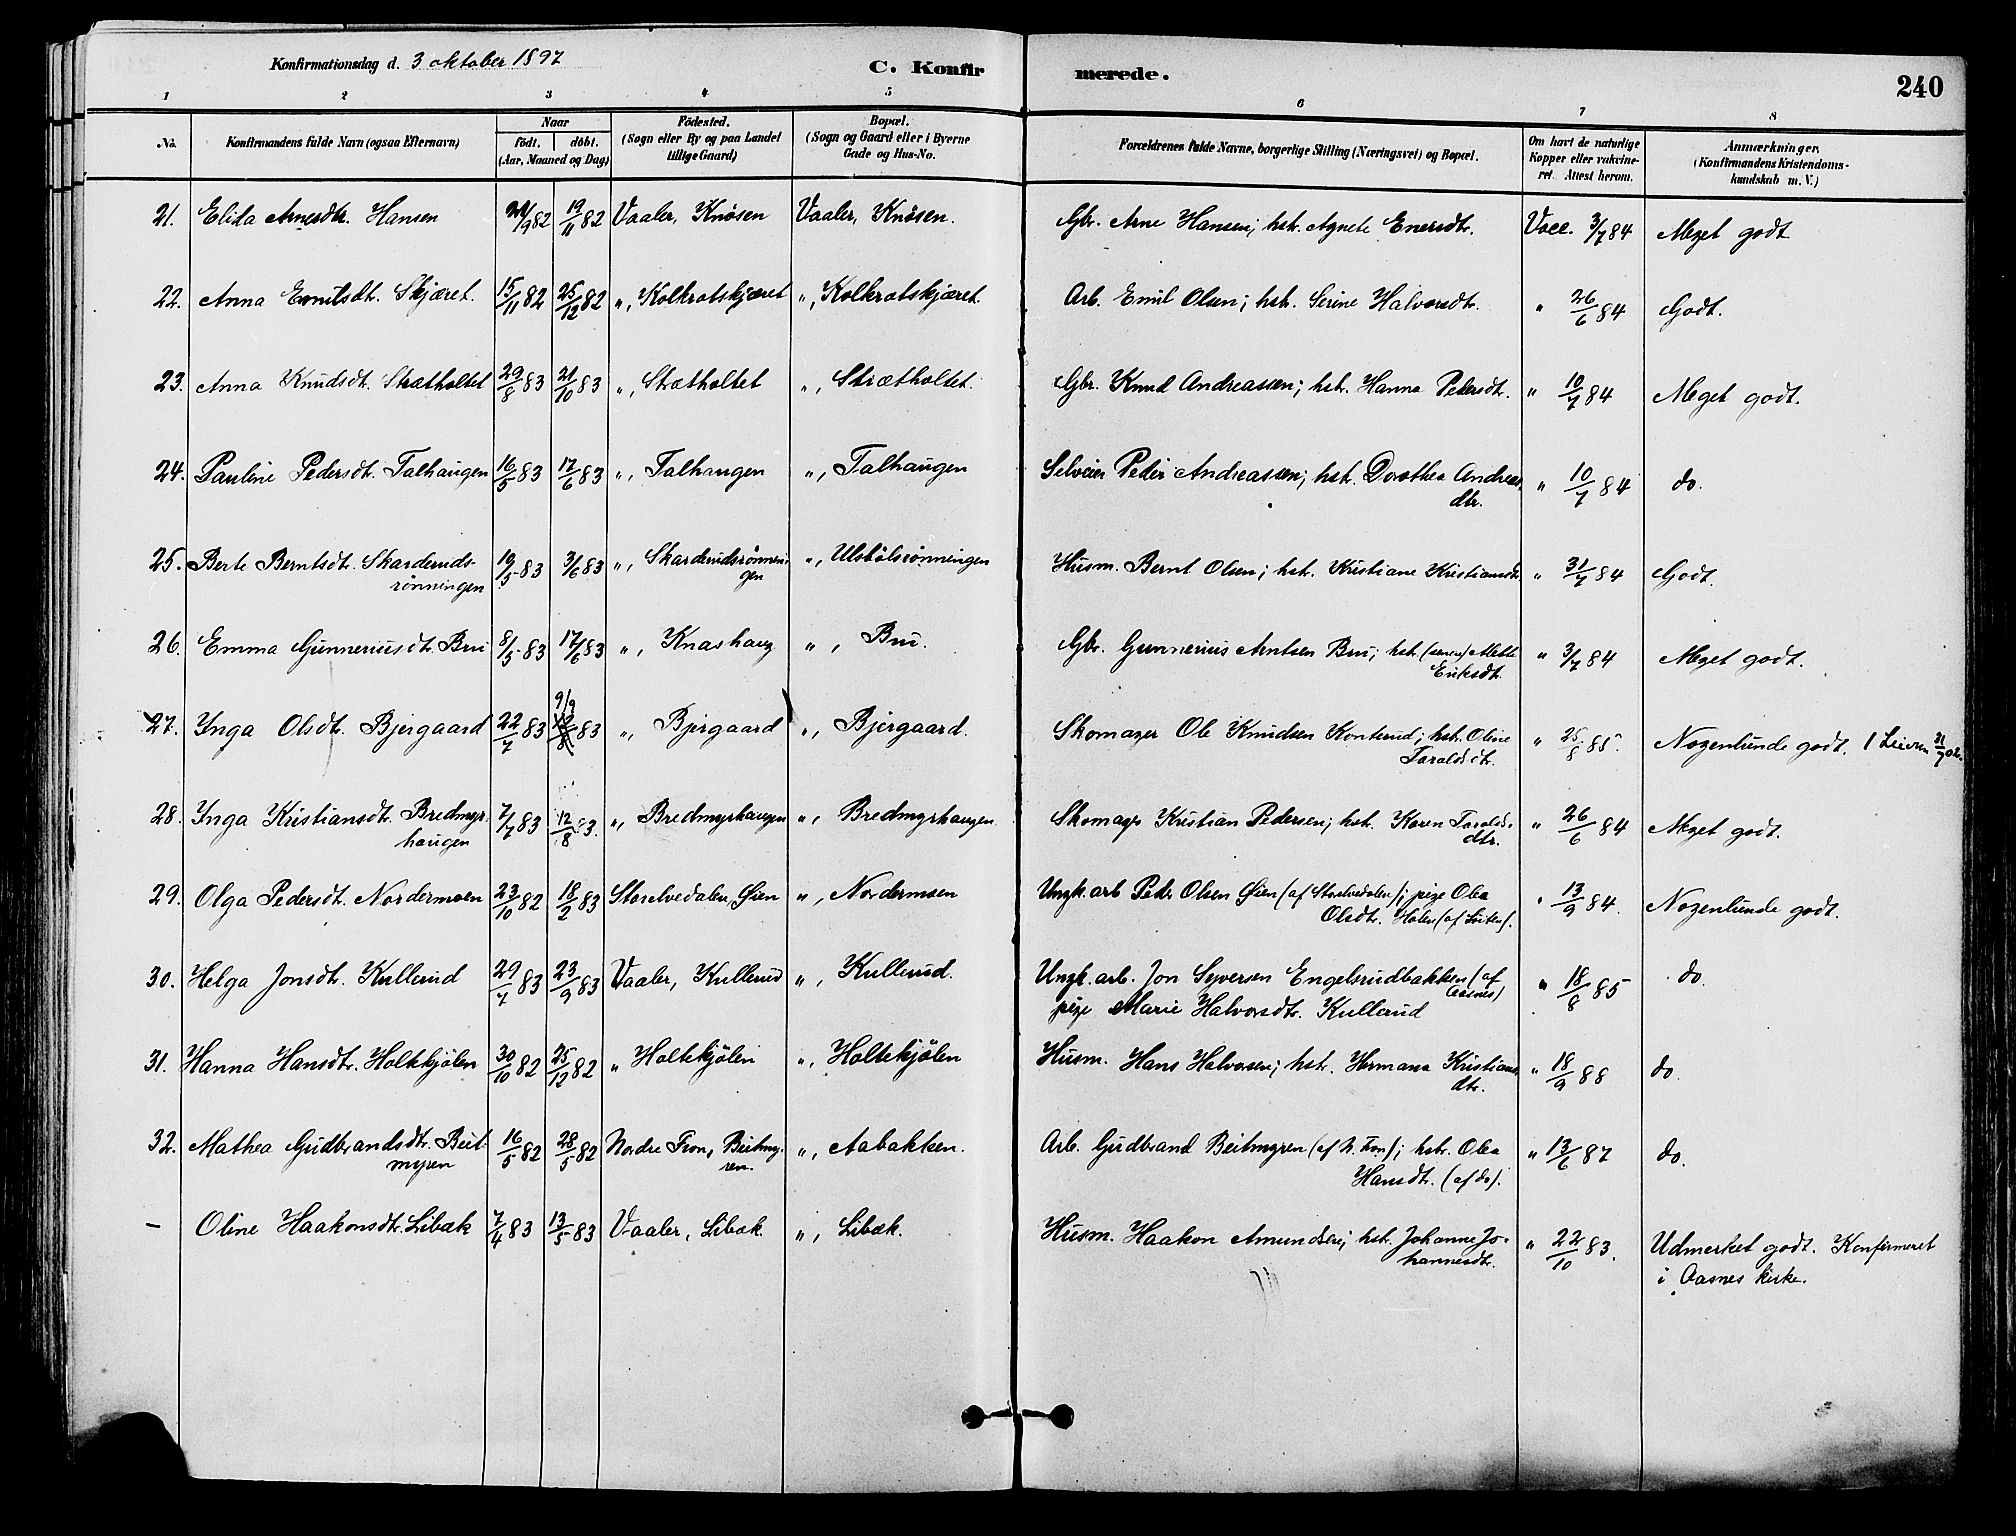 Konfirmationsdag d. 3 oktober 1897
C. Konfirmerede.
240
1 2 3 4 5 6 7 8
No.
Konfirmandens fulde Navn (ogsaa Efternavn)
Naar
födt. döbt.
(Aar, Maaned og Dag)
Födested.
(Sogn eller By og paa Landet
tillige Gaard)
Bopæl.
(Sogn og Gaard eller i Byerne
Gade og Hus-No.
Forældrenes fulde Navne, borgerlige Stilling (Næringsvei) og Bopæl.
Om havt de naturlige
Kopper eller vakcine-
ret. Attest herom.
Anmærkninger.
(Konfirmandens Kristendoms-
kundskab m. V.)
21. Elida Arnesdtr. Hansen 9 82 19/11 82 Vaaler, Knøsen Vaaler, Knøsen. Gbr. Arne Hansen; hstr. Agnete Enersdtr. Vacc. 3/7 84 Meget godt
22. Anna Emilsdt. Skjæret. 15/11 82 25/12 82 ", Kolkrotskjæret ", Kolkrotskjæret. Arb. Emil Olsen; hstr. Serine Halvorsdtr. " 26/6 84 Godt.
23. Anna Knudsdt. Strætholtet 29/8 83 21/10 83 ", Strætholtet ", Strætholtet. Gbr. Knud Andreassen; hstr. Hanna Pedersdtr. " 10/7 84 Meget godt.
24. Pauline Pedersdtr. Talhaugen 16/5 83 17/6 83 ", Talhaugen ", Talhaugen Selveier Peder Andreassen; hstr. Dorothea Andreas-
dtr. " 10/7 84 do.
25. Berte Berntsdtr. Skarderuds-
rönningen 19/5 83 3/6 83 ", Skarderudsrønnin-
gen ", Ulstølsrönningen Husm. Bernt Olsen; hstr. Kristiane Kristiansdtr. " 31/7 84 Godt.
26. Emma Gunneriusdtr. Bru 8/5 83 17/6 83 ", Knashaug ", Bru. Gbr. Gunnerius Arntsen Bru; hstr. Mette
Eriksdtr. " 3/7 84 Meget godt.
27. Ynga Olsdtr. Bjergaard 22/7 83 9/9 83 ", Bjergaard ", Bjergaard. Skomager Ole Knudsen Konterud; hstr. Oline
Taraldsdtr. " 25/8 85. Nogenlunde godt.
28. Ynga Kristiansdtr. Bredmyr-
haugen 7/7 83 12/8 83. ", Bredmyrhaugen ", Bredmyrhaugen. Skomager Kristian Pedersen; hstr. Karen Taralds-
dtr. " 26/6 84 Meget godt.
29. Olga Pedersdt. Nordermoen 23/10 82 18/2 83 Storelvedalen, Øien ", Nordermoen Ungk. arb. Peder Olsen Øien (af Storelvedalen); pige Olea
Olsdtr. Holen (af Löiten). " 13/9 84. Nogenlunde godt.
30. Helga Jonsdtr. Kullerud 29/7 83 23/9 83 Vaaler, Kullerud ", Kullerud. Ungk. arb. Jon Syversen Engelsrudbakken (af
Aasnes)
pige Marie Halvorsdtr. Kullerud " 18/8 85 do.
31. Hanna Hansdtr. Holtekjølen 30/10 82 25/12 82 " Holtekjølen ", Holtekjølen Husm. Hans Halvorsen; hstr. Hermana Kristians-
dtr. " 18/9 88 do.
32. Mathea Gudbrandsdtr. Beit-
myren 16/5 82 28/5 82 Nordre Fron, Beitmy-
ren. ", Aabakken. Arb. Gudbrand Beitmyren (af N. Fron); hstr. Olea
Hansdtr. (af do). " 13/6 87 do.
- Oline Haakonsdtr. Libæk 7/4 83 13/5 83 Vaaler, Libæk. ", Libæk. Husm. Haakon Amundsen; hstr. Johanne Jo-
hannesdtr. " 22/10 83. Udmerket godt. Konfirmeret
i Aasnes kirke.